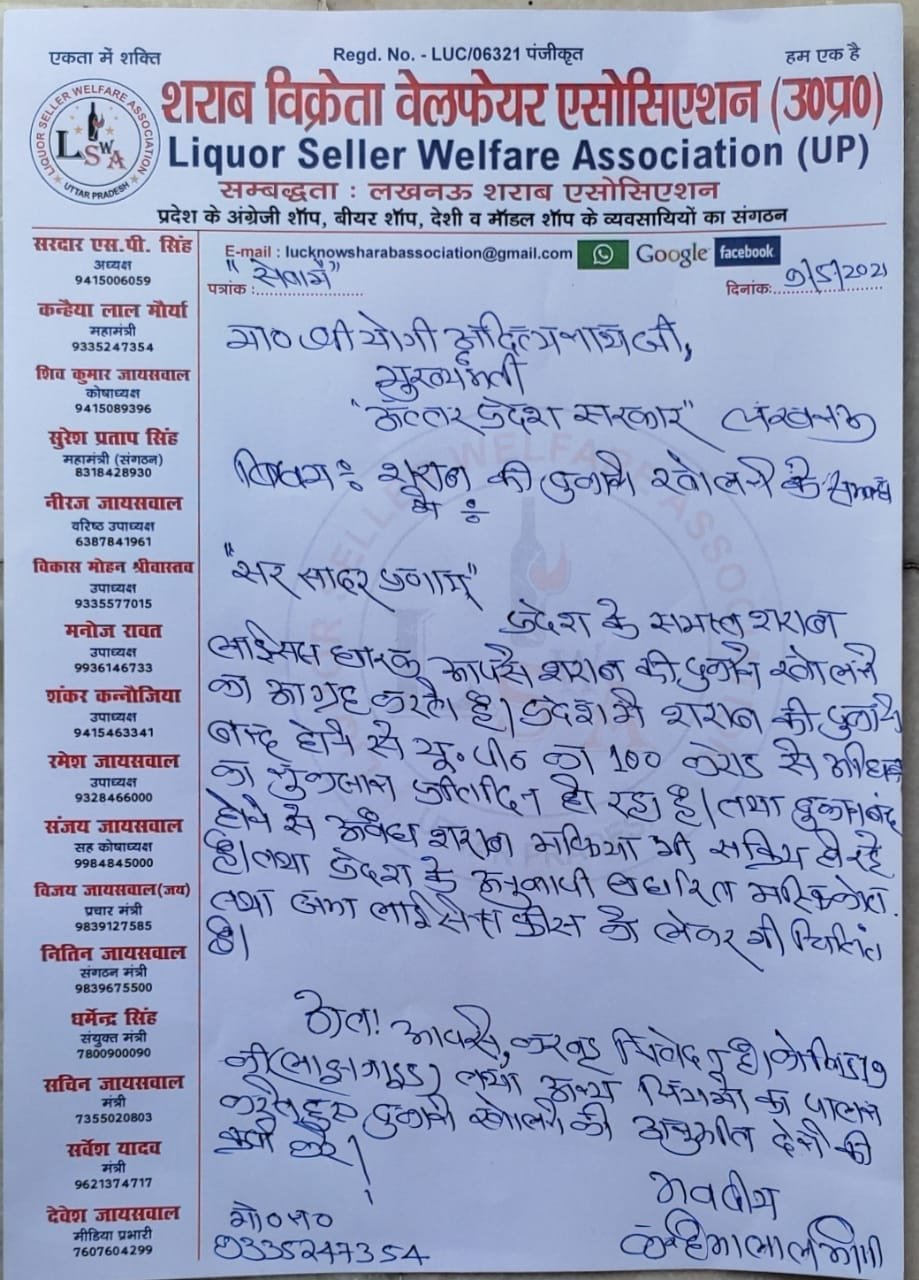 एकता में शक्ति
Regd. No. - LUC/06321 पंजीकृत
हम एक है
शराब विक्रेता वेलफेयर एसोसिएशन (उ0प्र0)
Liquor Seller Welfare Association (UP)
सम्बद्धता : लखनऊ शराब एसोसिएशन
प्रदेश के अंग्रेजी शॉप, बीयर शॉप, देशी व मॉडल शॉप के व्यवसायियों का संगठन
LIQUOR SELLER WELFARE ASSOCIATION
LSWA
UTTAR PRADESH
सरदार एस.पी. सिंह
अध्यक्ष
9415006059
कन्हैया लाल मौर्या
महामंत्री
9335247354
शिव कुमार जायसवाल
कोषाध्यक्ष
9415089396
सुरेश प्रताप सिंह
महामंत्री (संगठन)
8318428930
नीरज जायसवाल
वरिष्ठ उपाध्यक्ष
6387841961
विकास मोहन श्रीवास्तव
उपाध्यक्ष
9335577015
मनोज रावत
उपाध्यक्ष
9936146733
शंकर कन्नौजिया
उपाध्यक्ष
9415463341
रमेश जायसवाल
उपाध्यक्ष
9328466000
संजय जायसवाल
सह कोषाध्यक्ष
9984845000
विजय जायसवाल(जय)
प्रचार मंत्री
9839127585
नितिन जायसवाल
संगठन मंत्री
9839675500
धर्मेन्द्र सिंह
संयुक्त मंत्री
7800900090
सचिन जायसवाल
मंत्री
7355020803
सर्वेश यादव
मंत्री
9621374717
देवेश जायसवाल
मीडिया प्रभारी
7607604299
E-mail : lucknowsharabassociation@gmail.com Google facebook
"सेवामें"
पत्रांक :.....................
दिनांक:..9/5/2021
मा० श्री योगी आदित्यनाथ जी,
मुख्यमंत्री
"उत्तर प्रदेश सरकार" लखनऊ
विषय : शराब की दुकाने खोलने के सम्बन्ध
मे ÷
"सर सादर प्रणाम"
प्रदेश के समस्त शराब
लाईसेंस धारक आपसे शराब की दुकाने खोलने
का आग्रह करते है। प्रदेश मे शराब की दुकाने
बन्द होने से यू० पी० का 100 करोड से अधिक
का नुकसान प्रतिदिन हो रहा है। तथा दुकान बंद
होने से अवैध शराब माफिया भी सक्रिय हो रहे
है। तथा प्रदेश के अनुज्ञापी
तथा लाईसेन्स फीस को लेकर भी चिंतित
है।
अतः आपसे करबद्ध निवेदन है। कोविड 19
की (गाइड) तथा अन्य नियमो का पालन
करते हुए दुकाने खोलने की अनुमति देने की
करे।
मो० न०
9335247354
भवदीय
कन्हैयालाल मौर्या